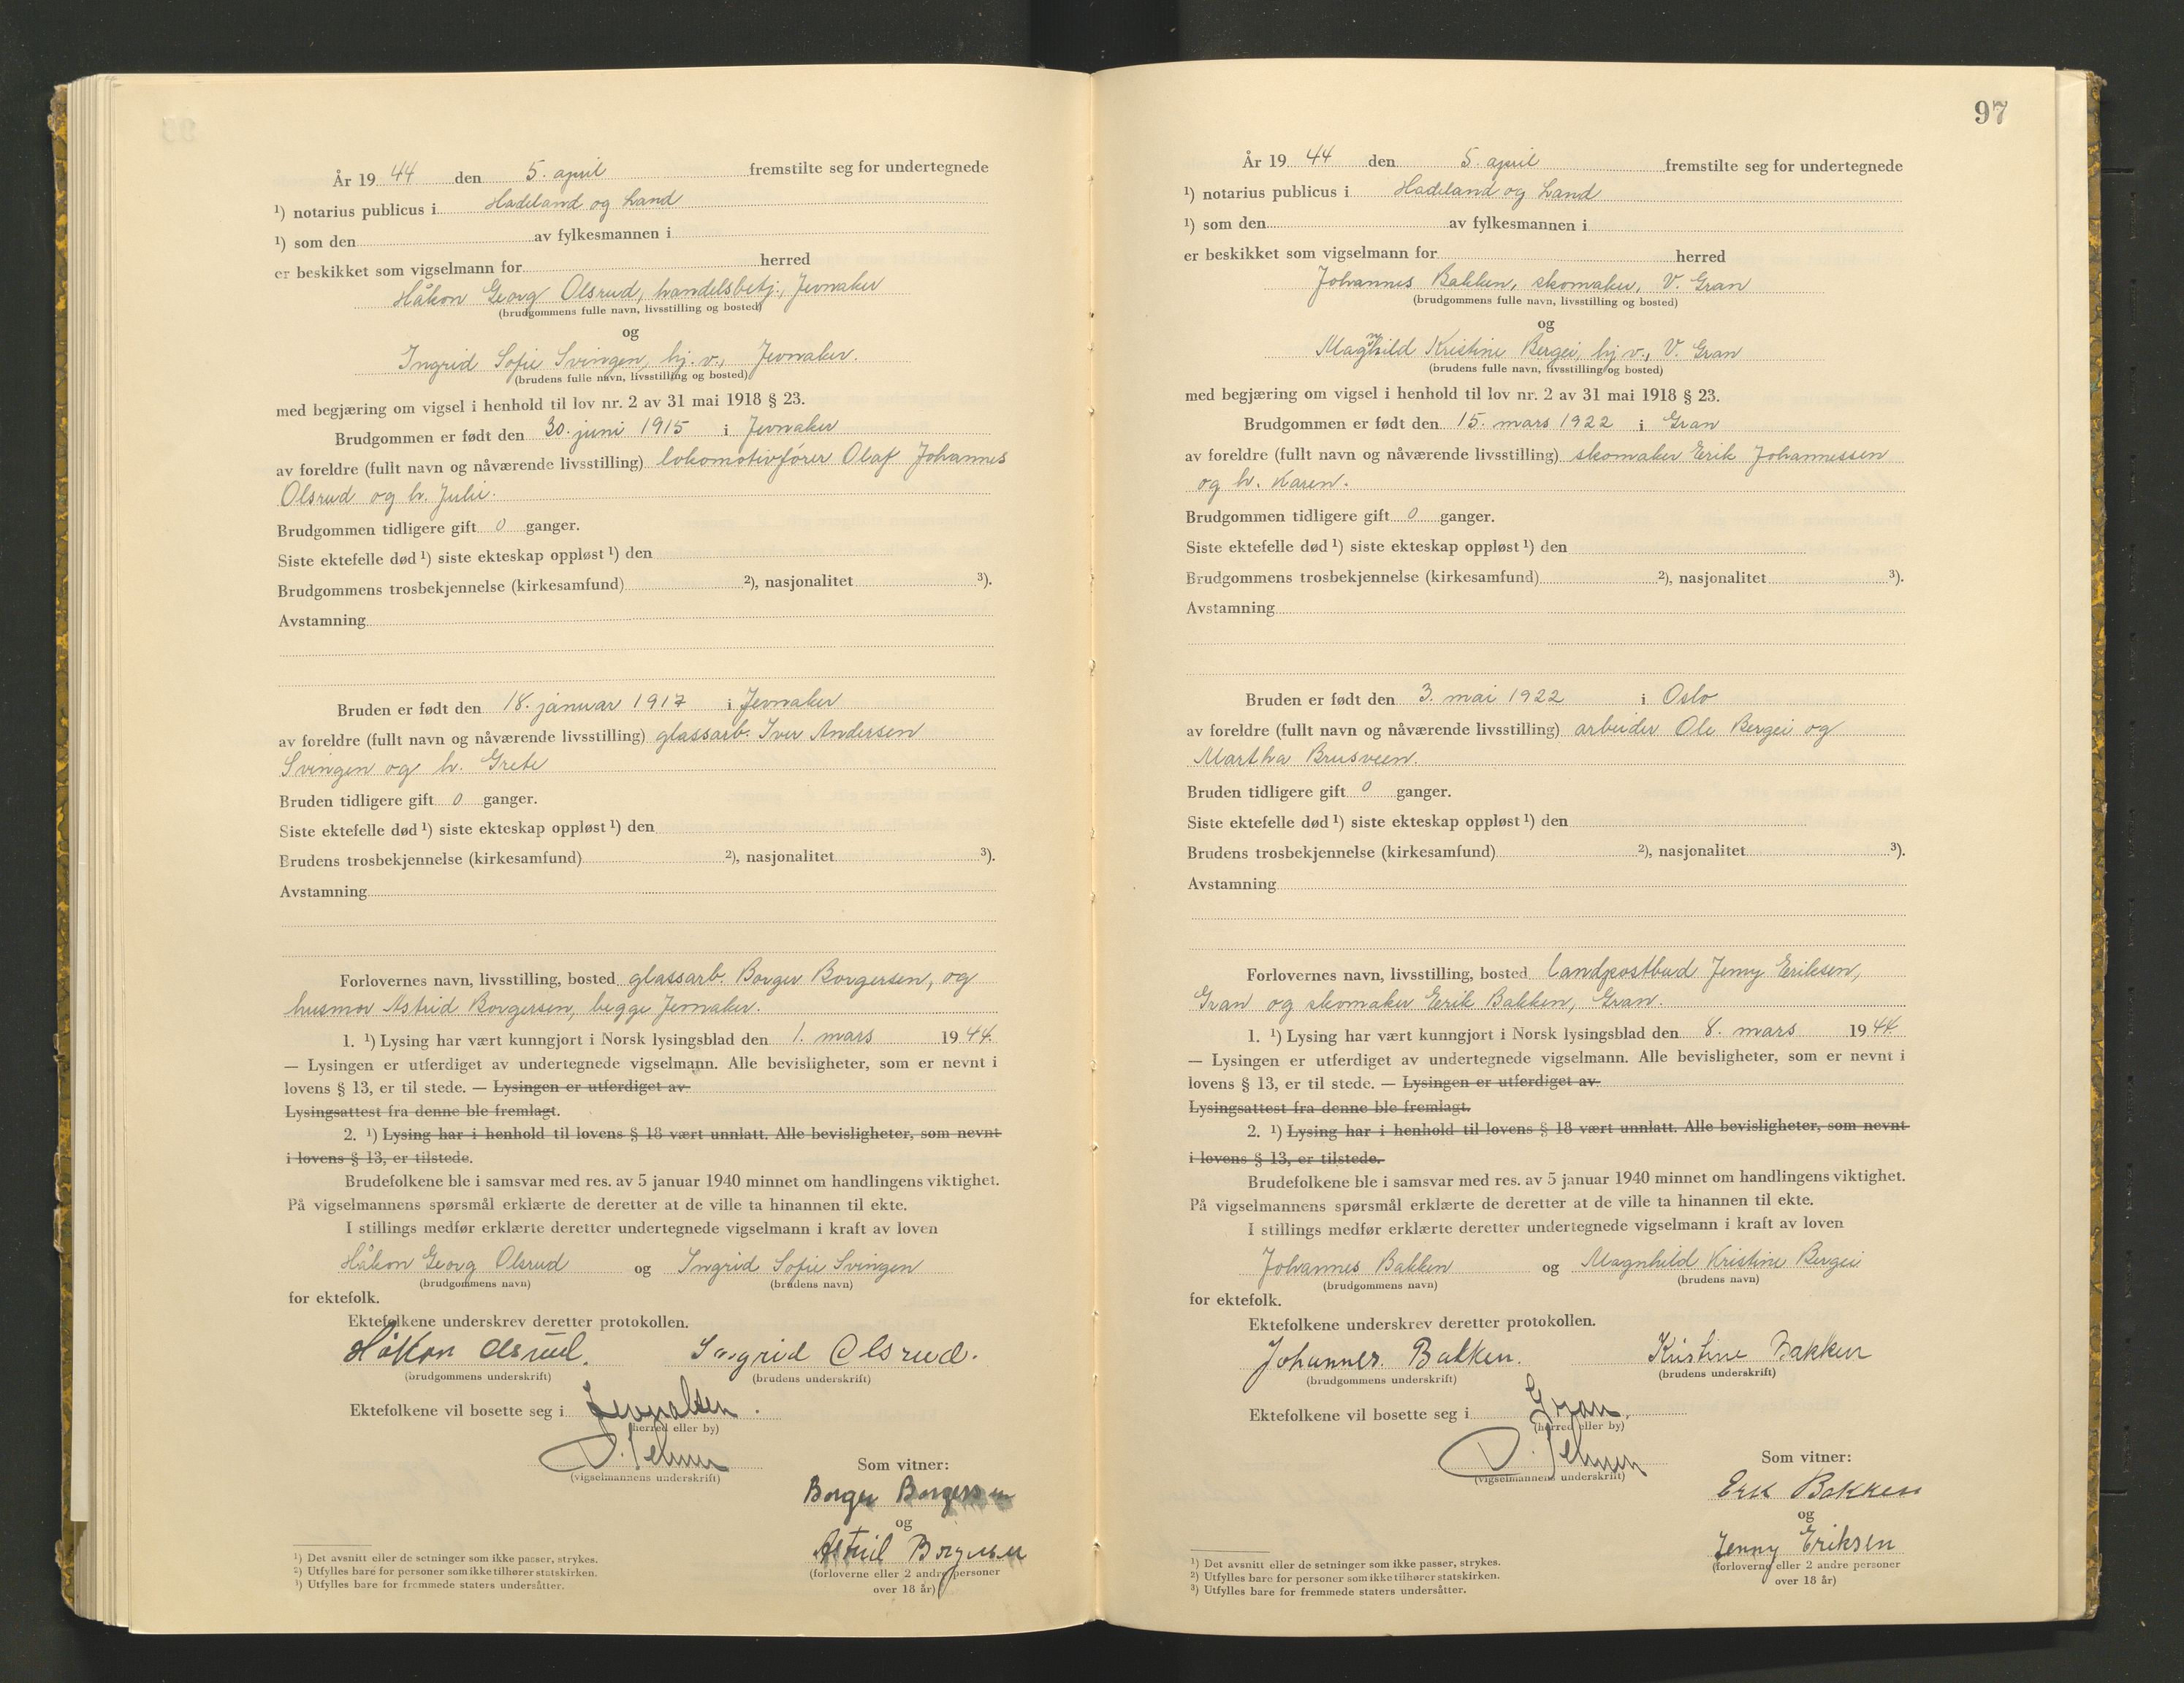 År 19 44 den 5. april fremstilte seg for undertegnede
¹) notarius publicus i Hadeland og Land
¹) som den av fylkesmannen i
er beskikket som vigselmann for herred
Håkon Georg Olsrud, handelsbetj., Jevnaker
(brudgommens fulle navn, livsstilling og bosted)
og
Ingrid Sofie Svingen, hj. v., Jevnaker.
(brudens fulle navn, livsstilling og bosted)
med begjæring om vigsel i henhold til lov nr. 2 av 31 mai 1918 § 23.
Brudgommen er født den 30. juni 1915 i Jevnaker
av foreldre (fullt navn og nåværende livsstilling) lokomotivfører Olaf Johannes
Olsrud og h. Julie.
Brudgommen tidligere gift 0 ganger.
Siste ektefelle død ¹) siste ekteskap oppløst ¹) den
Brudgommens trosbekjennelse (kirkesamfund) ²), nasjonalitet ³).
Avstamning
Bruden er født den 18. januar 1917 i Jevnaker
av foreldre (fullt navn og nåværende livsstilling) glassarb. Iver Andersen
Svingen og h. Grete
Bruden tidligere gift 0 ganger.
Siste ektefelle død ¹) siste ekteskap oppløst ¹) den
Brudens trosbekjennelse (kirkesamfund) ²), nasjonalitet ³).
Avstamning
Forlovernes navn, livsstilling, bosted glassarb. Borger Borgersen, og
husmor Astrid Borgersen, begge Jevnaker.
1. ¹) Lysing har vært kunngjort i Norsk lysingsblad den 1. mars 19 44.
— Lysingen er utferdiget av undertegnede vigselmann. Alle bevisligheter, som er nevnt i
lovens § 13, er til stede. — Lysingen er utferdiget av
Lysingsattest fra denne ble fremlagt.
2. ¹) Lysing har i henhold til lovens § 18 vært unnlatt. Alle bevisligheter, som nevnt
i lovens § 13, er tilstede.
Brudefolkene ble i samsvar med res. av 5 januar 1940 minnet om handlingens viktighet.
På vigselmannens spørsmål erklærte de deretter at de ville ta hinannen til ekte.
I stillings medfør erklærte deretter undertegnede vigselmann i kraft av loven
Håkon Georg Olsrud og Ingrid Sofie Svingen
(brudgommens navn) (brudens navn)
for ektefolk.
Ektefolkene underskrev deretter protokollen.
Håkon Olsrud. Ingrid Olsrud.
(brudgommens underskrift) (brudens underskrift)
Ektefolkene vil bosette seg i Jevnaker.
(herred eller by)
(vigselmannens underskrift)
Som vitner:
Borger Borgersen
og
Astrid Borgersen
(forloverne eller 2 andre personer
over 18 år)
¹) Det avsnitt eller de setninger som ikke passer, strykes.
²) Utfylles bare for personer som ikke tilhører statskirken.
³) Utfylles bare for fremmede staters undersåtter.
97
År 19 44 den 5. april fremstilte seg for undertegnede
¹) notarius publicus i Hadeland og Land
¹) som den av fylkesmannen i
er beskikket som vigselmann for herred
Johannes Bakken, skomaker, V. Gran
(brudgommens fulle navn, livsstilling og bosted)
og
Magnhild Kristine Bergei, hj. v., V. Gran
(brudens fulle navn, livsstilling og bosted)
med begjæring om vigsel i henhold til lov nr. 2 av 31 mai 1918 § 23.
Brudgommen er født den 15. mars 1922 i Gran
av foreldre (fullt navn og nåværende livsstilling) skomaker Erik Johannessen
og h. Karen.
Brudgommen tidligere gift 0 ganger.
Siste ektefelle død ¹) siste ekteskap oppløst ¹) den
Brudgommens trosbekjennelse (kirkesamfund) ²), nasjonalitet ³).
Avstamning
Bruden er født den 3. mai 1922 i Oslo
av foreldre (fullt navn og nåværende livsstilling) arbeider Ole Bergei og
Martha Brusveen.
Bruden tidligere gift 0 ganger.
Siste ektefelle død ¹) siste ekteskap oppløst ¹) den
Brudens trosbekjennelse (kirkesamfund) ²), nasjonalitet ³).
Avstamning
Forlovernes navn, livsstilling, bosted landpostbud Jenny Eriksen,
Gran og skomaker Erik Bakken, Gran.
1. ¹) Lysing har vært kunngjort i Norsk lysingsblad den 8. mars 19 44.
— Lysingen er utferdiget av undertegnede vigselmann. Alle bevisligheter, som er nevnt i
lovens § 13, er til stede. — Lysingen er utferdiget av
Lysingsattest fra denne ble fremlagt.
2. ¹) Lysing har i henhold til lovens § 18 vært unnlatt. Alle bevisligheter, som nevnt
i lovens § 13, er tilstede.
Brudefolkene ble i samsvar med res. av 5 januar 1940 minnet om handlingens viktighet.
På vigselmannens spørsmål erklærte de deretter at de ville ta hinannen til ekte.
I stillings medfør erklærte deretter undertegnede vigselmann i kraft av loven
Johannes Bakken og Magnhild Kristine Bergei
(brudgommens navn) (brudens navn)
for ektefolk.
Ektefolkene underskrev deretter protokollen.
Johannes Bakken. Kristine Bakken
(brudgommens underskrift) (brudens underskrift)
Ektefolkene vil bosette seg i Gran.
(herred eller by)
(vigselmannens underskrift)
Som vitner:
Erik Bakken
og
Jenny Eriksen
(forloverne eller 2 andre personer
over 18 år)
¹) Det avsnitt eller de setninger som ikke passer, strykes.
²) Utfylles bare for personer som ikke tilhører statskirken.
³) Utfylles bare for fremmede staters undersåtter.